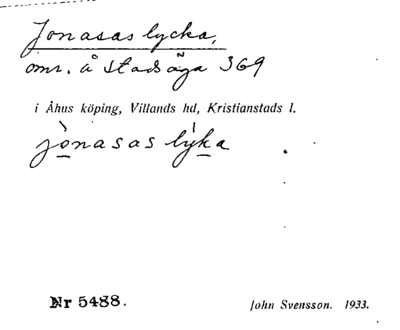 Jonasas lycka,
omr. å stadsäga 369
i Åhus köping, Villands hd, Kristianstads l.
jònasas lýka .
Nr 5488.
John Svensson. 1933.